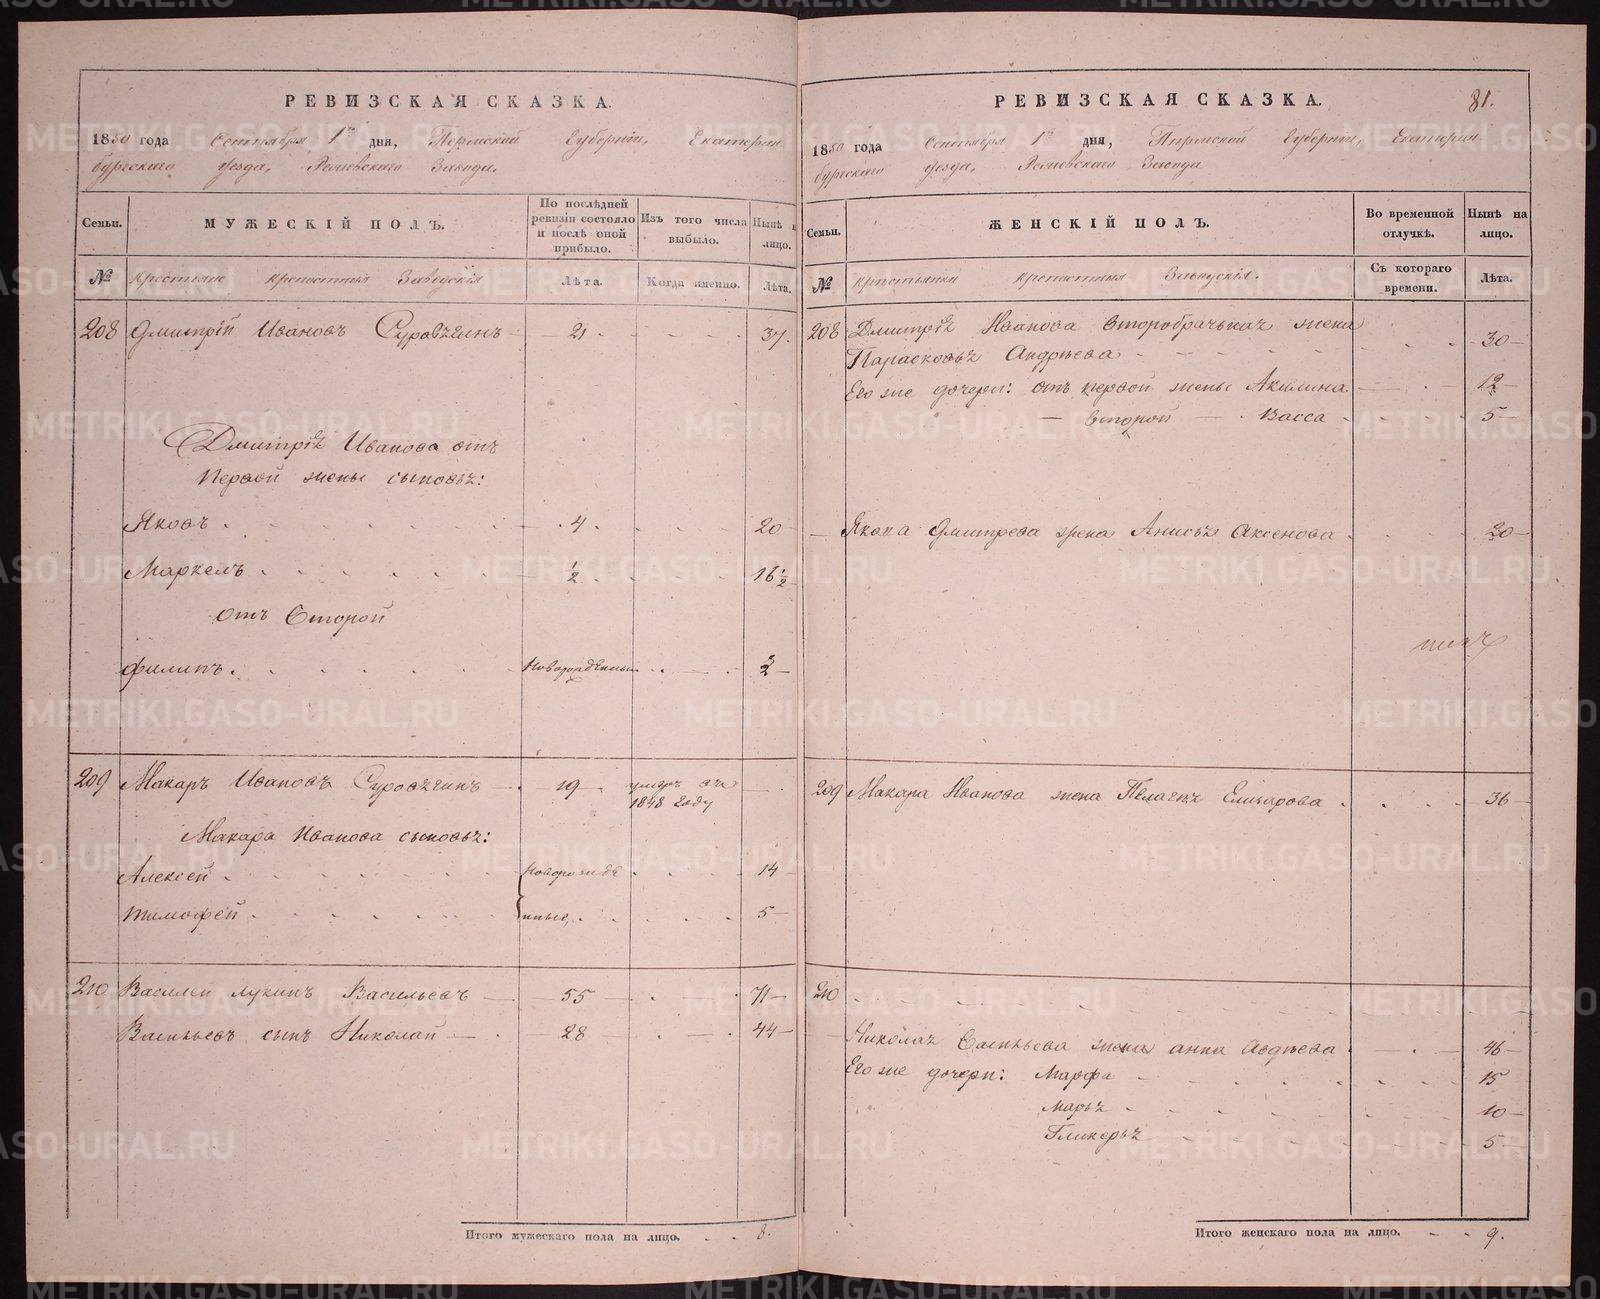 РЕВИЗСКАЯ СКАЗКА.
1850 года Сентября 1го дня, Пермской Губернiи, Екатерин
бургскаго уезда, Режевскаго Завода.
Семьи. МУЖЕСКIЙ ПОЛЪ. По послѣдней ревизiи состояло и послѣ оной прибыло. Изъ того числа выбыло. Нынѣ на лицо.
№ крестьяне крепостныя Заводскiя Лѣта. Когда именно. Лѣта.
208 Дмитрiй Ивановъ Суровѣгинъ 21 37.
Дмитрiя Иванова отъ
первой жены сыновья:
Яковъ 4 20
Маркелъ 1/2 16 1/2
отъ Второй
Филипъ Новорожденный 2
209 Макаръ Ивановъ Суровѣгинъ 19 умеръ въ 1848 году
Макара Иванова сыновья:
Алексей Новорожде 14
Тимофей нные, 5
210 Василей лукинъ Васильевъ 55 71
Васильевъ сынъ Николай 28 44
Итого мужескаго пола на лицо. 8.
РЕВИЗСКАЯ СКАЗКА. 81.
1850 года Сентября 1го дня, Пермской Губернiи, Екатерин
бургскаго уезда, Режевскаго Завода
Семьи. ЖЕНСКIЙ ПОЛЪ. Во временной отлучкѣ. Нынѣ на лицо.
№ крестьянки крепостныя Заводскiя. Съ котораго времени. Лѣта.
208 Дмитрiя Иванова второбрачная жена
Парасковья Андреева 30
Его же дочери: отъ первой жены Акилина 12
второй Васса 5
Якова Дмитрева жена Анисья Аксенова 20
209 Макара Иванова жена Пелагея Елизарова 36
210
Николая Васильева жена анна Авдеева 46
Его же дочери: Марфа 15
Марья 10
Гликерья 5
Итого женскаго пола на лицо. 9.
METRIKI.GASO-URAL.RU